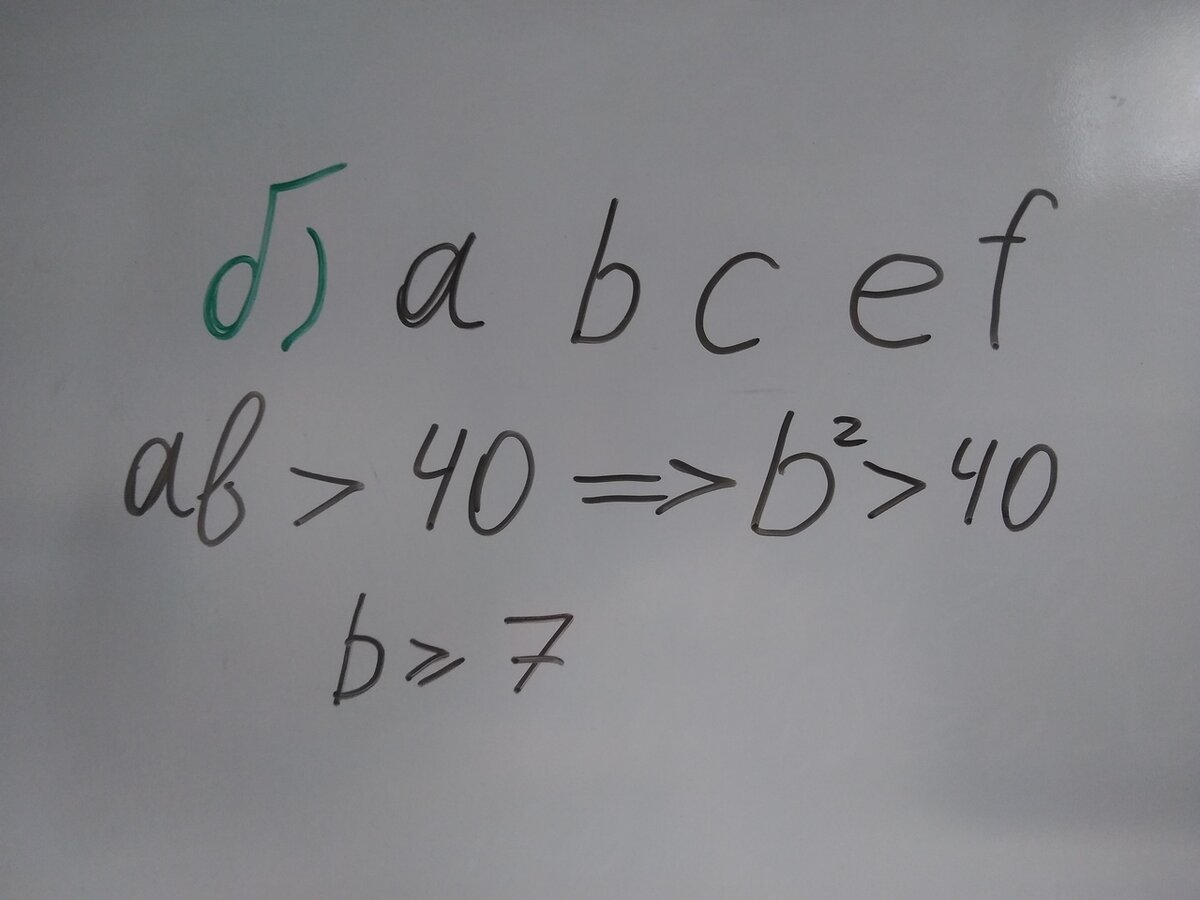 б) a b c e f
ab > 40 => b² > 40
b ≥ 7